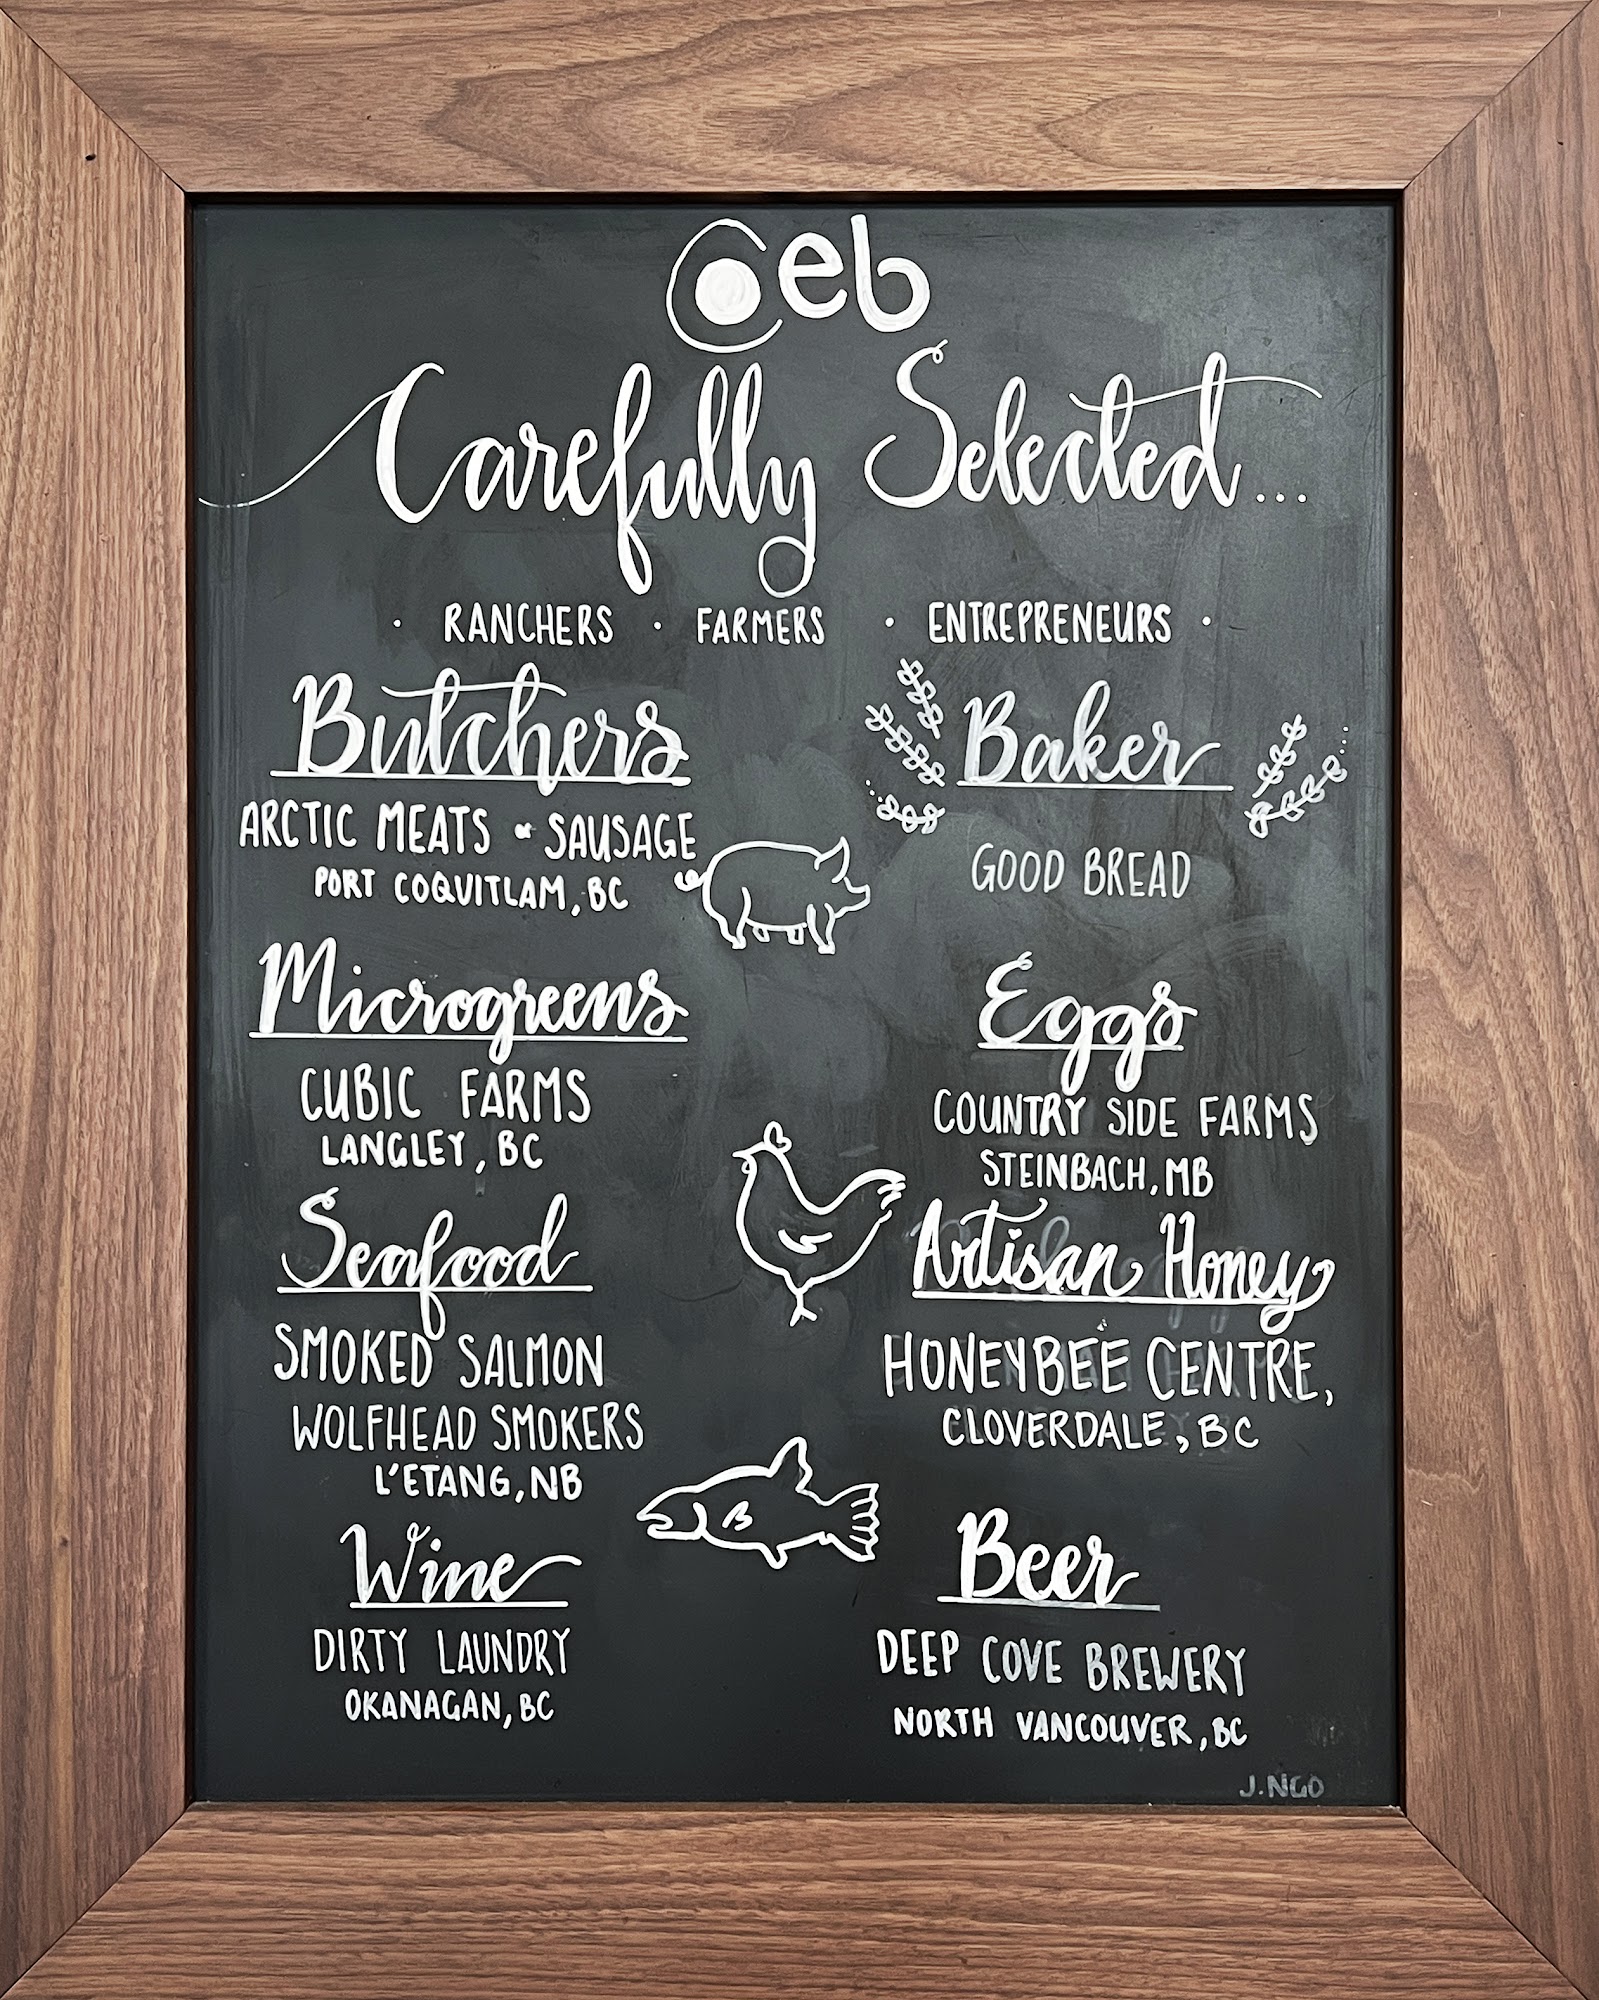 Ceb
Carefully Selected...
· RANCHERS · FARMERS · ENTREPRENEURS ·
Butchers
ARCTIC MEATS & SAUSAGE
PORT COQUITLAM, BC
Microgreens
CUBIC FARMS
LANGLEY, BC
Seafood
SMOKED SALMON
WOLFHEAD SMOKERS
L'ETANG, NB
Wine
DIRTY LAUNDRY
OKANAGAN, BC
Baker
GOOD BREAD
Eggs
COUNTRY SIDE FARMS
STEINBACH, MB
Artisan Honey
HONEYBEE CENTRE,
CLOVERDALE, BC
Beer
DEEP COVE BREWERY
NORTH VANCOUVER, BC
J.NGO